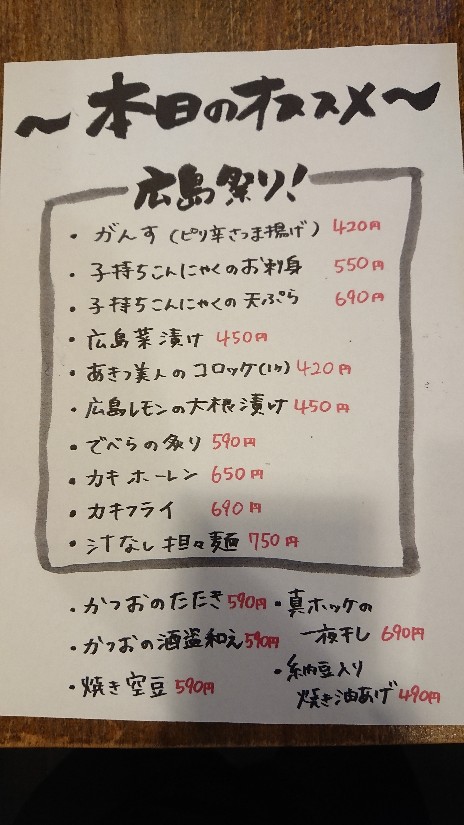 ～本日のオススメ～
広島祭り！
・がんす（ピリ辛さつま揚げ）420円
・子持ちこんにゃくのお刺身 550円
・子持ちこんにゃくの天ぷら 690円
・広島菜漬け 450円
・あきつ美人のコロッケ(1ケ) 420円
・広島レモンの大根漬け 450円
・でべらの炙り 590円
・カキホーレン 650円
・カキフライ 690円
・汁なし担々麺 750円
・かつおのたたき 590円
・かつおの酒盗和え 590円
・焼き空豆 590円
・真ホッケの
一夜干し 690円
・納豆入り
焼き油あげ 490円